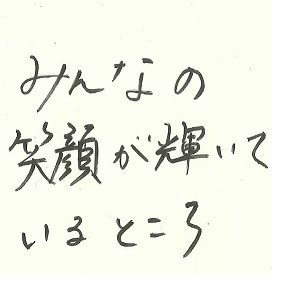 みんなの
笑顔が輝いて
いるところ